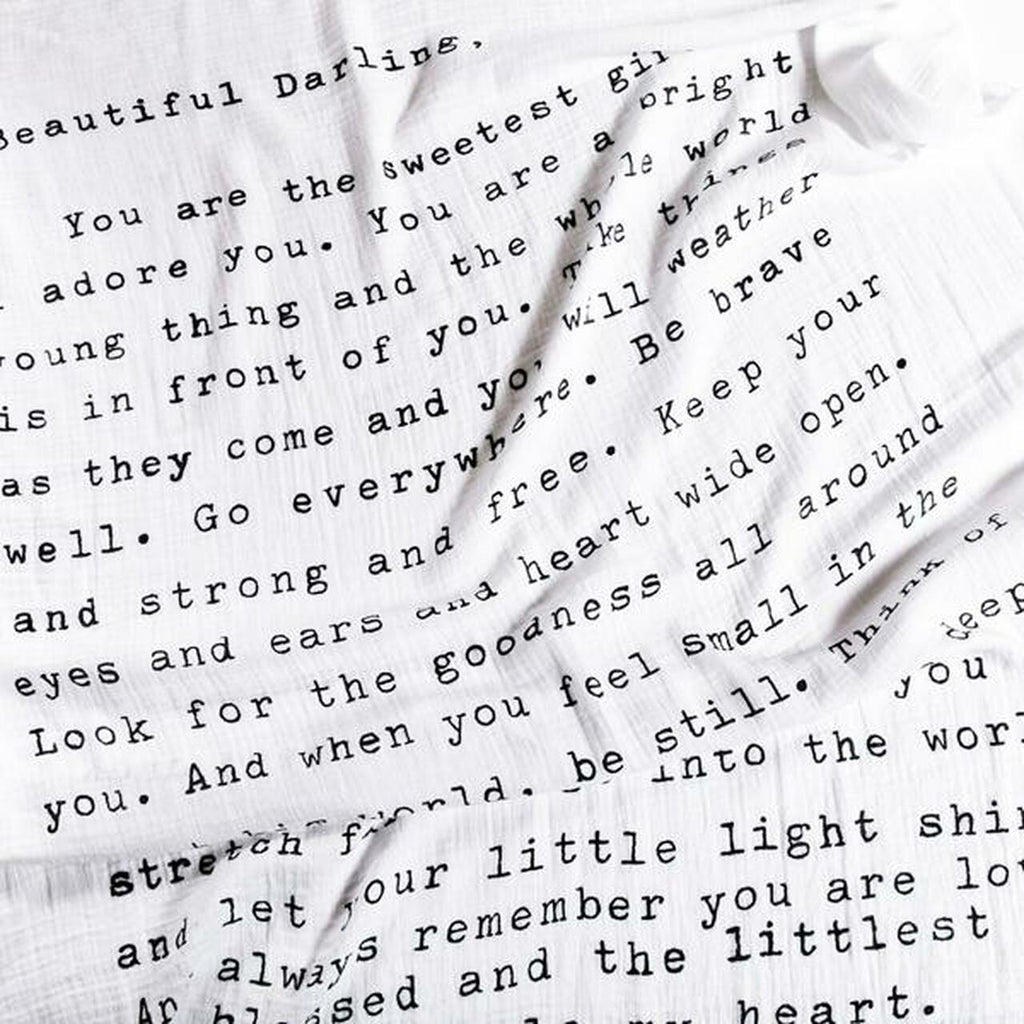 Beautiful Darling,
You are the sweetest
adore you. You are a bright
young thing and the whole world
is in front of you. Take
as they come and you will weather
well. Go everywhere. Be brave
and strong and free. Keep your
eyes and ears and heart wide open.
Look for the goodness all around
you. And when you feel small in the
world, be still. Think of
deep
stretch into the
you
and let your little light
always remember you are
and the littlest
heart.